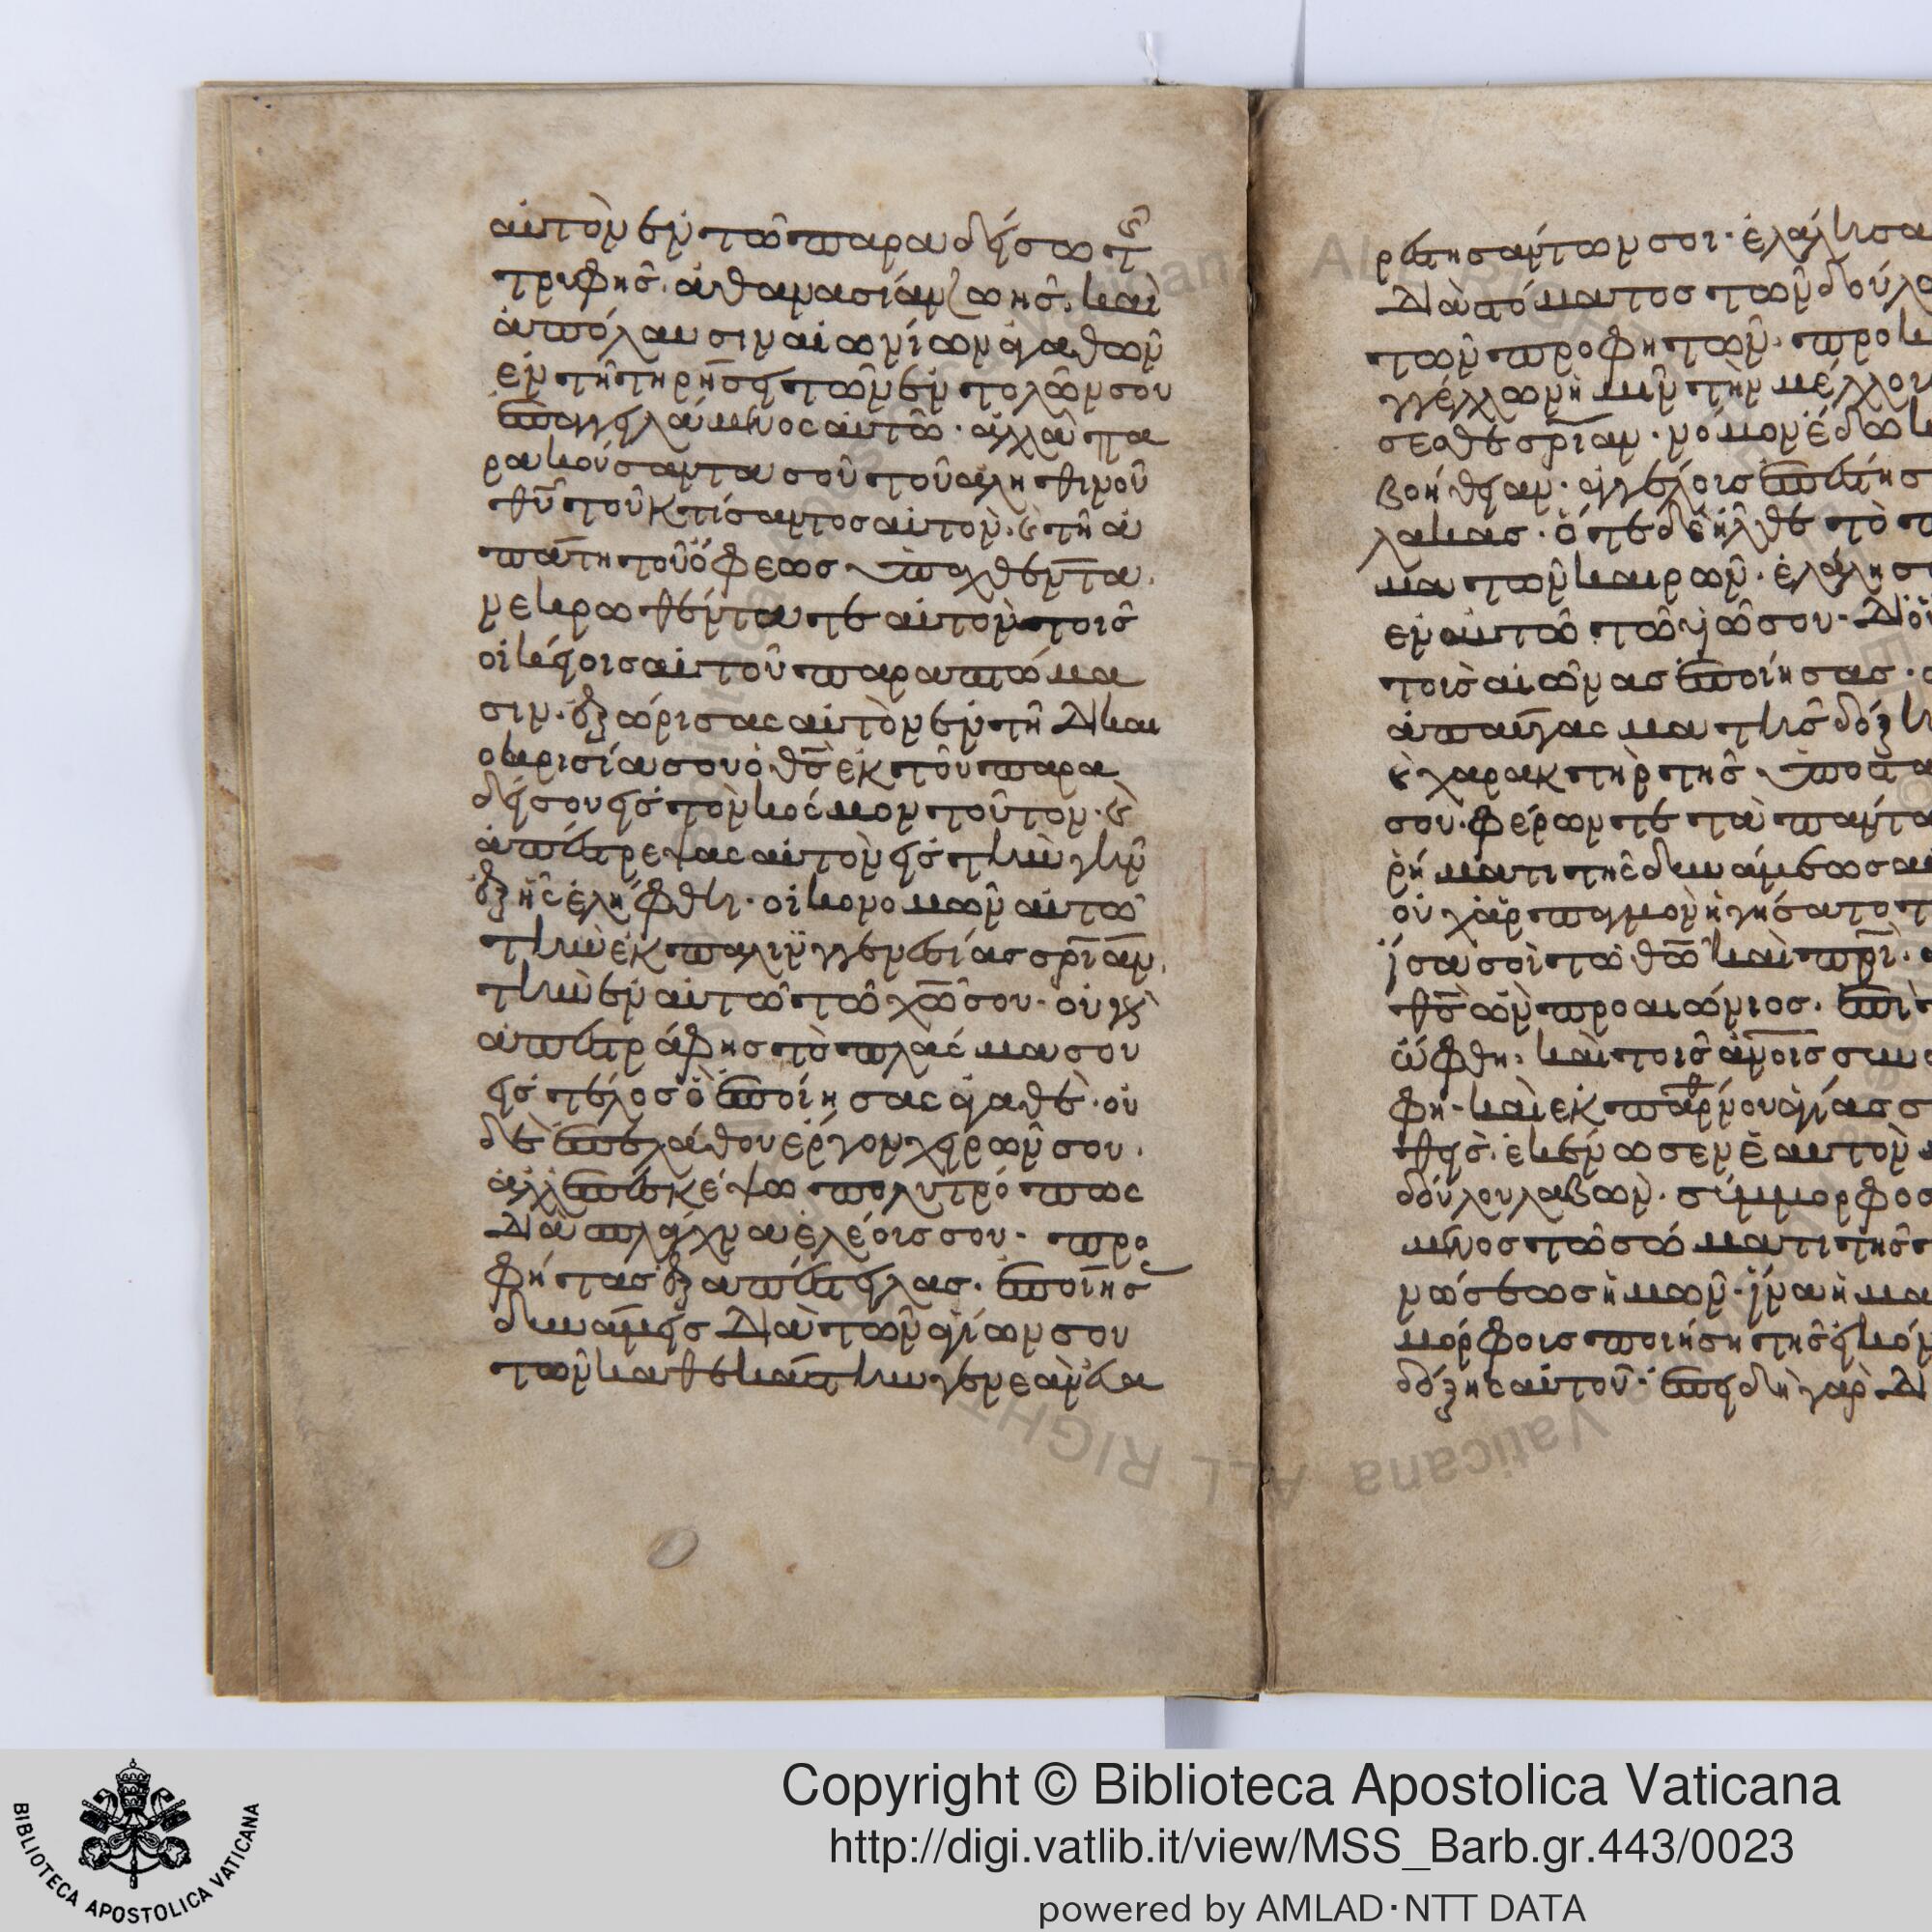 αὐτὸν ἐν τῶ παραδείσω τῆς
τρυφῆς. ἀθανασίαν ζωῆς. καὶ
ἀπόλαυσιν αἰωνίων ἀγαθῶν
ἐν τῆ τηρήσει τῶν ἐντολῶν σου
ἐπαγγειλάμενος αὐτῶ· ἀλλὰ πα
ρακούσαντα σοῦ τοῦ ἀληθινοῦ
θῦ τοῦ κτίσαντος αὐτὸν. καὶ τῆ ἀ
πάτη τοῦ ὄφεως ὑπαχθέντα.
νεκρωθέντα τε αὐτὸν τοῖς
οἰκείοις αὐτοῦ παραπτώμα
σιν. ἐξώρισας αὐτὸν ἐν τῆ δικαι
οκρισία σου ὁ θς ἐκ τοῦ παρα
δείσου εἰς τὸν κόσμον τοῦτον. καὶ
ἀπέστρεψας αὐτὸν εἰς τὴν γῆν
ἐξ ἧς ἐλήφθη. οἰκονομῶν αὐτῶ
τὴν ἐκ παλιγγενεσίας σρίαν.
τὴν ἐν αὐτῶ τῶ χῶ σου. οὐ γὰρ
ἀπεστράφης τὸ πλάσμα σου
εἰς τέλος ὃ ἐποίησας ἀγαθέ. οὐ
δὲ ἐπελάθου ἔργον χειρῶν σου.
ἀλλ ἐπεσκέψω πολυτρόπως
διὰ σπλάγχνα ἐλέοις σου. προ
φήτας ἐξαπέστειλας. ἐποίησας
δυνάμεις διὰ τῶν ἁγίων σου
τῶν καθ ἑκάστην γενεὰν εὐα
ρεστησάντων σοι. ἐλάλησα
διὰ στόματος τῶν δούλω
τῶν προφητῶν. προκ
γγέλλων ἡμῖν τὴν μέλλου
σεσθε σρίαν. νόμον ἔδωκ
βοήθειαν. ἀγγέλοις ἐπέστησ
λακας. ὅτε δὲ ἦλθε τὸ π
μα τῶν καιρῶν. ἐλάλησ
ἐν αὐτῶ τῶ υἱῶ σου. δι οὗ
τοὺς αἰῶνας ἐποίησας.
ἀπαύγασμα τῆς δόξη
καὶ χαρακτὴρ τῆς ὑποστά
σου. φέρων τε τὰ πάντα
ῥήματι τῆς δυνάμεως αὐ
οὐχ ἁρπαγμὸν ἡγήσατο τ
ἴσα σοὶ τῶ θῶ καὶ πρὶ.
θς ὢν προαιώνιος. ἐπὶ τ
ὤφθη. καὶ τοῖς ἀνοις συν
φη. καὶ ἐκ παρθένου ἁγίας σ
θεὶς. ἐκένωσεν ἑαυτὸν
δούλου λαβὼν. σύμμορφος
μενος τῶ σώματι τῆς
νώσεως ἡμῶν. ἵνα ἡμᾶ
μόρφοις ποιήση τῆς εἰκόν
δόξης αὐτοῦ. ἐπειδὴ γὰρ δι
Copyright © Biblioteca Apostolica Vaticana
http://digi.vatlib.it/view/MSS_Barb.gr.443/0023
powered by AMLAD·NTT DATA
BIBLIOTECA APOSTOLICA VATICANA